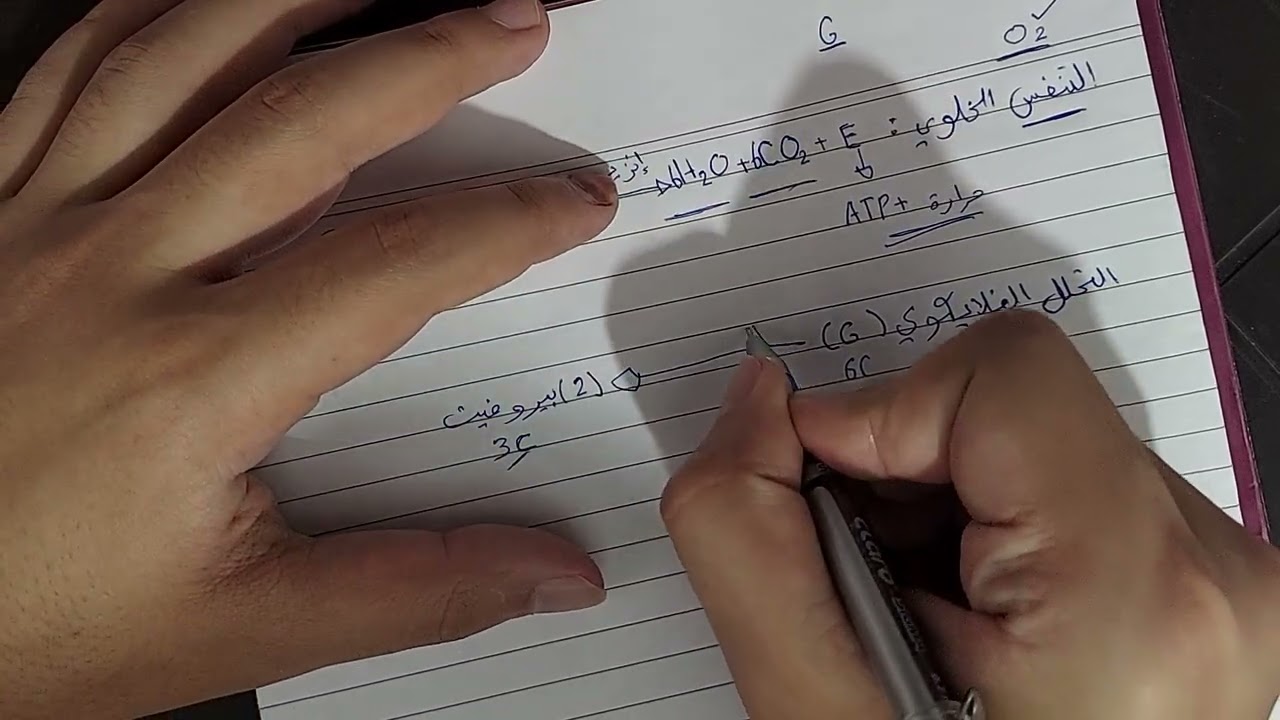 G O2 ✓
التنفس الخلوي :
إنزيم → 6H2O + 6CO2 + E
↓
ATP + حرارة
التحلل الغلايكوي (G) → (2) بيروفيت
6C
3C